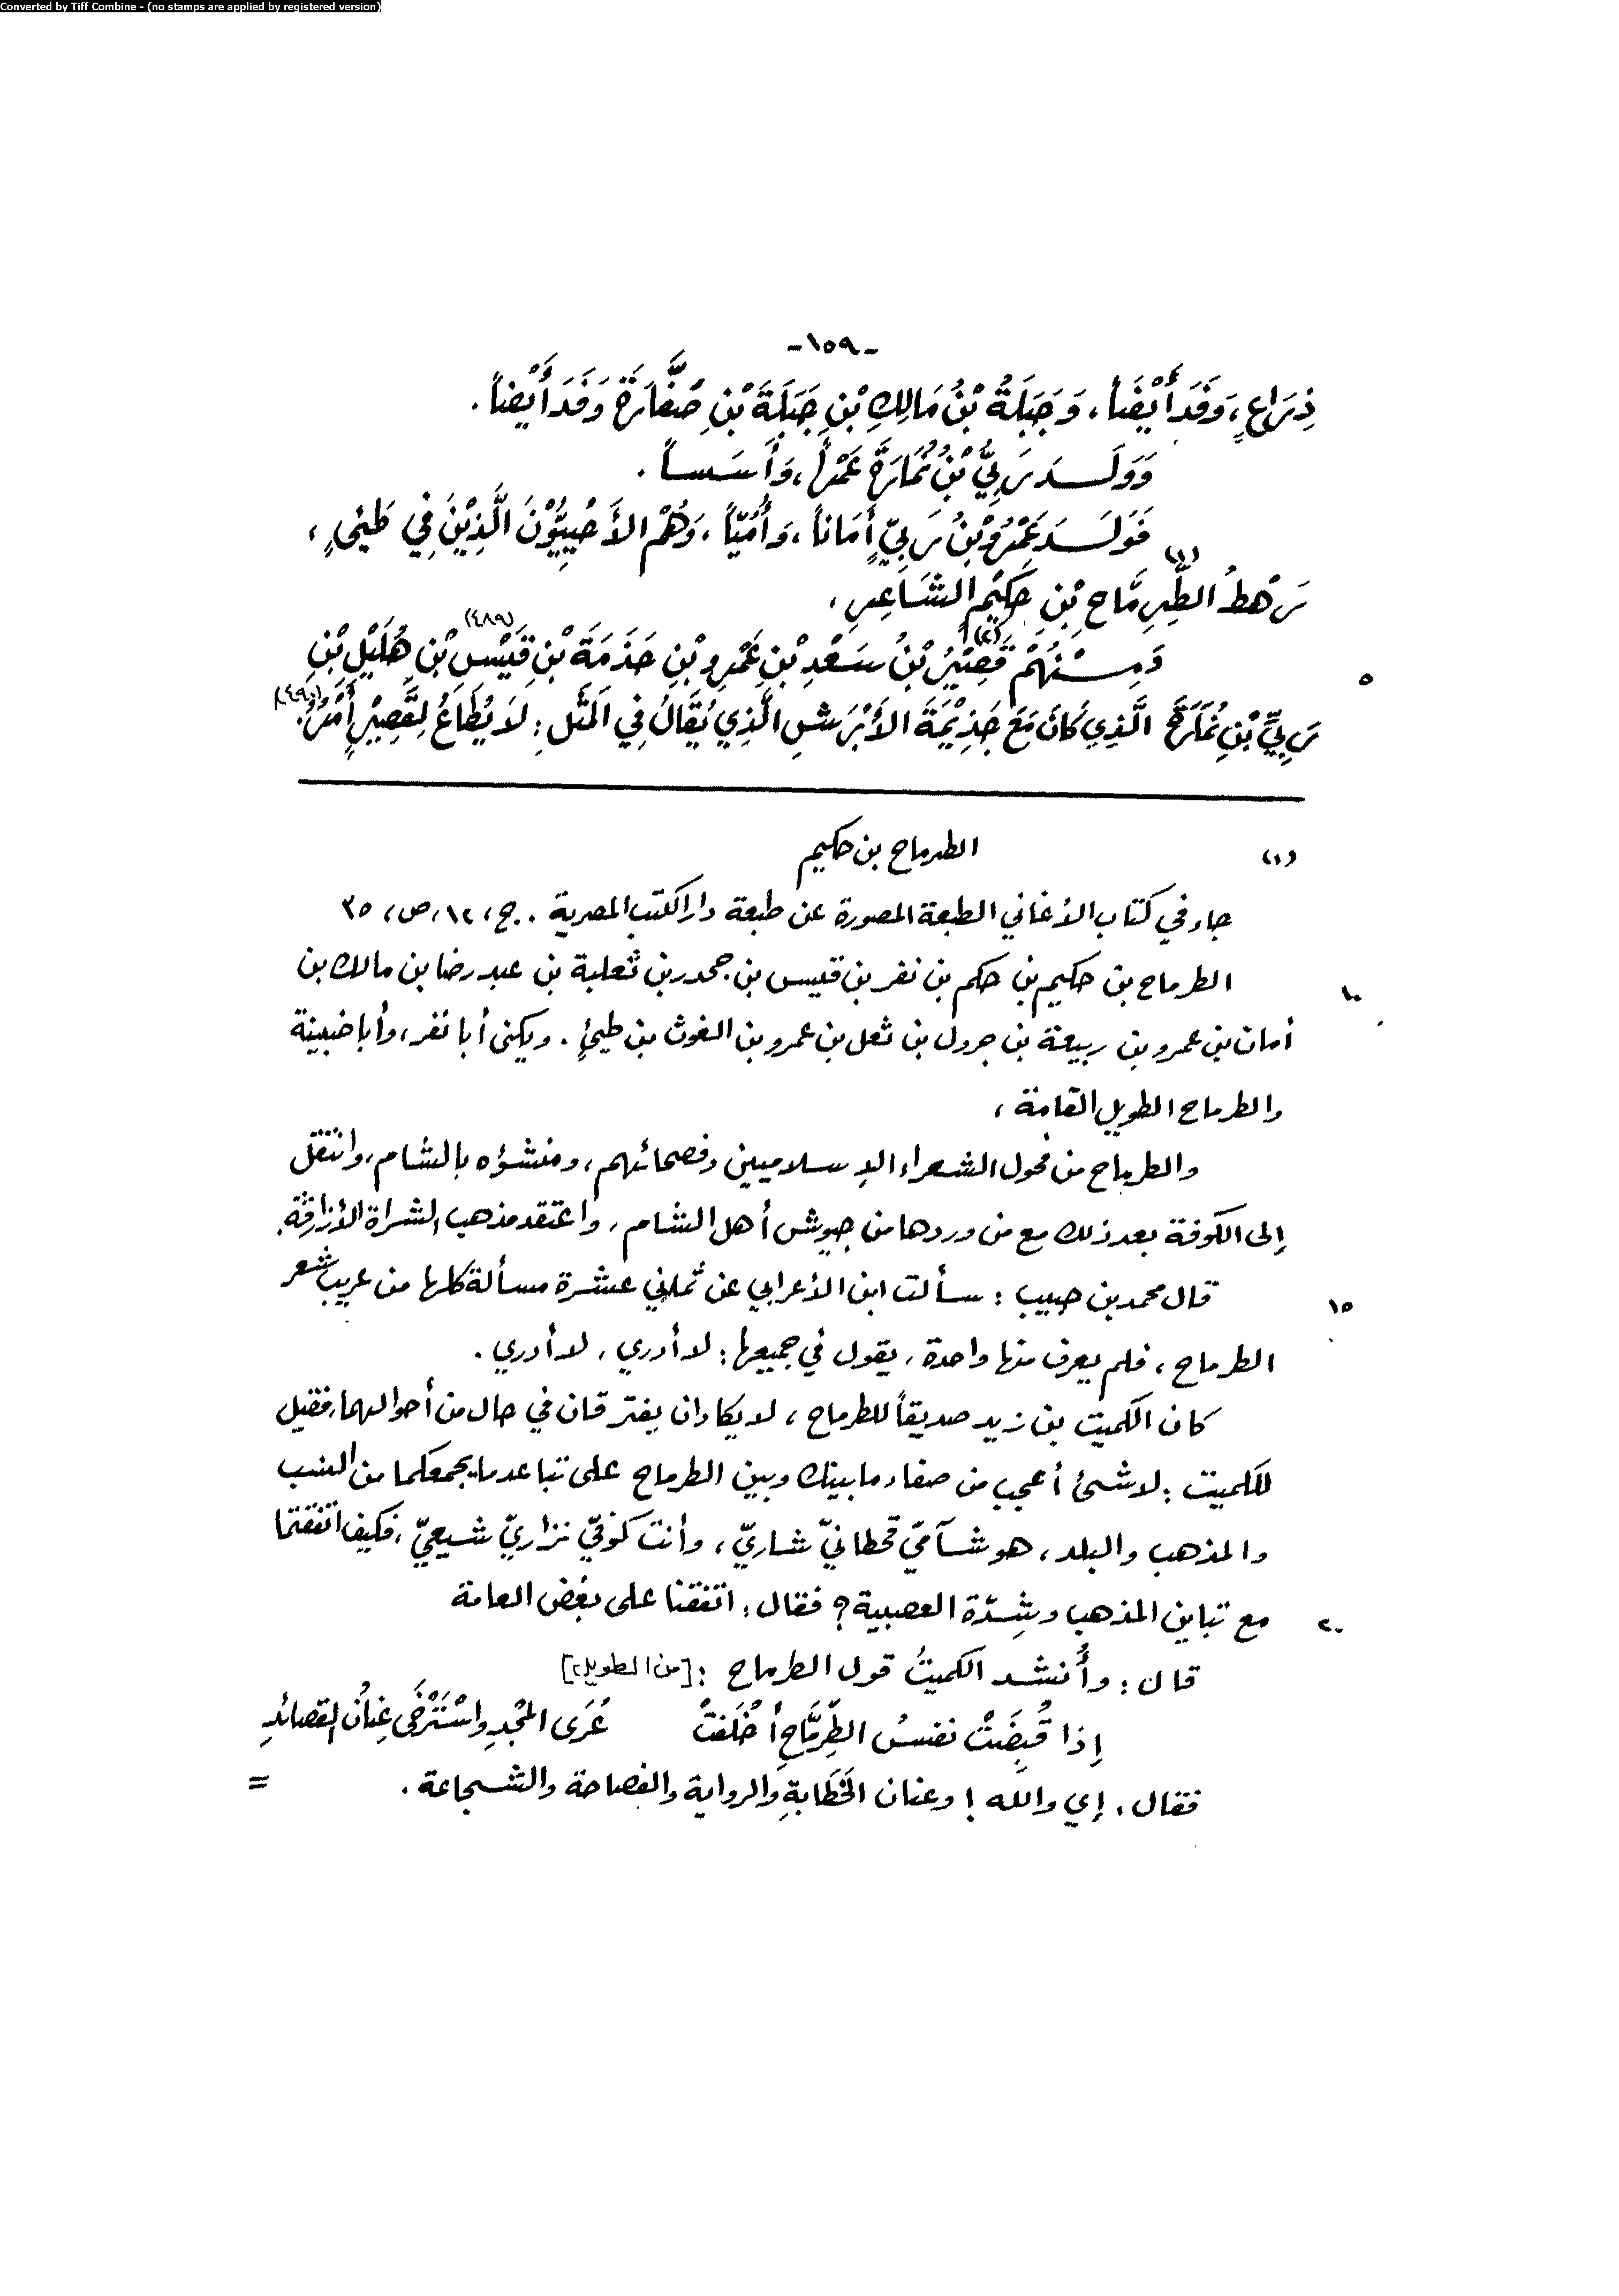 Converted by Tiff Combine - (no stamps are applied by registered version)
-١٥٩-
ذِرَاعٍ، وَفَدَ أَيْضَاً، وَجَبَلَةُ بْنُ مَالِكِ بْنِ جَبَلَةَ بْنِ صَفَّارَةَ وَفَدَ أَيْضاً.
وَوَلَدَ رَبِيُّ بْنُ نُمَارَةَ عَمْراً، وَأَسَساً.
فَوَلَدَ عَمْرُو بْنُ رَبِيٍّ أَمَاناً، وَأُمَيّاً، وَهُمْ الأَحْيِيُّوْنَ الَّذِيْنَ فِي طَيِّئٍ،
رَهْطُ الطِّرِمَّاحِ بْنِ حَكِيْمٍ الشَّاعِرِ، (١)
وَمِنْهُمْ قَصِيْرُ (٢) بْنُ سَعْدِ بْنِ عَمْرِو بْنِ جَذَمَةَ بْنِ قَيْسِ بْنِ هُلَيْلِ بْنِ (٤٨٩)
٥
رَبِيِّ بْنِ نُمَارَةَ الَّذِي كَانَ مَعَ جَذِيْمَةَ الأَبْرَشِ الَّذِي يُقَالُ فِي المَثَلِ: لَا يُطَاعُ لِقَصِيْرٍ أَمْرٌ. (٤٩٠)
(١) الطرماح بن حكيم
جاء في كتاب الأغاني الطبعة المصورة عن طبعة دار الكتب المصرية. ج، ١٢، ص، ٣٥
الطرماح بن حكيم بن حكم بن نفر بن قيس بن جحدر بن ثعلبة بن عبد رضا بن مالك بن
١٠
أمان بن عمرو بن ربيعة بن جرول بن ثعل بن عمرو بن الغوث بن طيئ. ويكنى أبا نفر، وأبا ضبينة
والطرماح الطويل القامة،
والطرماح من فحول الشعراء الإسلاميين وفصحائهم، ومنشؤه بالشام، وانتقل
إلى الكوفة بعد ذلك مع من وردها من جيوش أهل الشام، واعتقد مذهب الشراة الأزارقة.
قال محمد بن حبيب: سألت ابن الأعرابي عن ثماني عشرة مسألة كلها من غريب شعر
١٥
الطرماح، فلم يعرف منها واحدة، يقول في جميعها: لا أدري، لا أدري.
كان الكميت بن زيد صديقاً للطرماح، لا يكادان يفترقان في حال من أحوالهما، فقيل
للكميت: لا شئ أعجب من صفاء ما بينك وبين الطرماح على تباعد ما يجمعكما من النسب
والمذهب والبلد، هو شآميّ قحطانيّ شاريّ، وأنت كوفيّ نزاريّ شيعيّ، فكيف اتفقتما
مع تباين المذهب وشِدّة العصبية؟ فقال: اتفقنا على بغض العامة
٢٠
قال: وأُنشد الكميتُ قول الطرماح: [من الطويل]
إذا قُبِضَتْ نفسُ الطِّرِمَّاحِ أخْلَقَتْ عُرَى المَجْدِ واسْتَرْخَى عِنَانُ القصائدِ
فقال: إي والله! وعنان الخَطَابةِ والرواية والفصاحة والشجاعة.
=